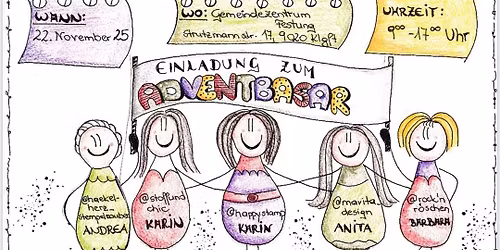 WANN:
22. November 25
WO: Gemeindezentrum
Festung
Strutzmannstr. 17, 9020 Klgft
UHRZEIT:
9⁰⁰ - 17⁰⁰ Uhr
EINLADUNG ZUM
ADVENTBASAR
@haekel-
herz_
stempelzauber
ANDREA
@stoffund
chic
KARIN
@happystamp
KARIN
@mavita_
design
ANITA
@rock'n
röschen
BARBARA